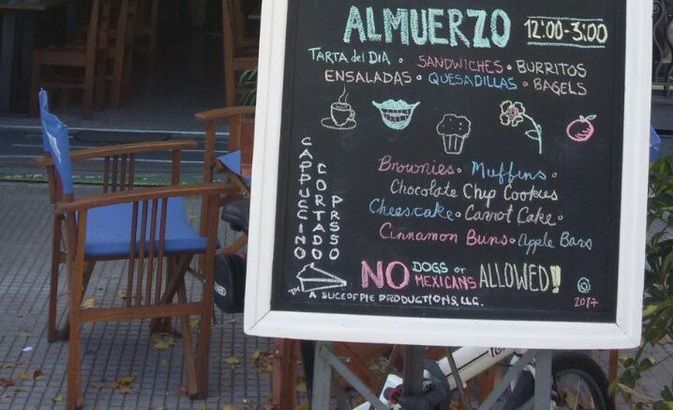 ALMUERZO 12:00-3:00
TARTA del DIA • SANDWICHES • BURRITOS
ENSALADAS • QUESADILLAS • BAGELS
Brownies • Muffins •
Chocolate Chip Cookies
Cheescake • Carrot Cake •
Cinnamon Buns • Apple Bars
CAPPUCCINO
CORTADO
PRSSO
NO DOGS or MEXICANS ALLOWED!
TM A SLICE OF PIE PRODUCTIONS, LLC.
2017